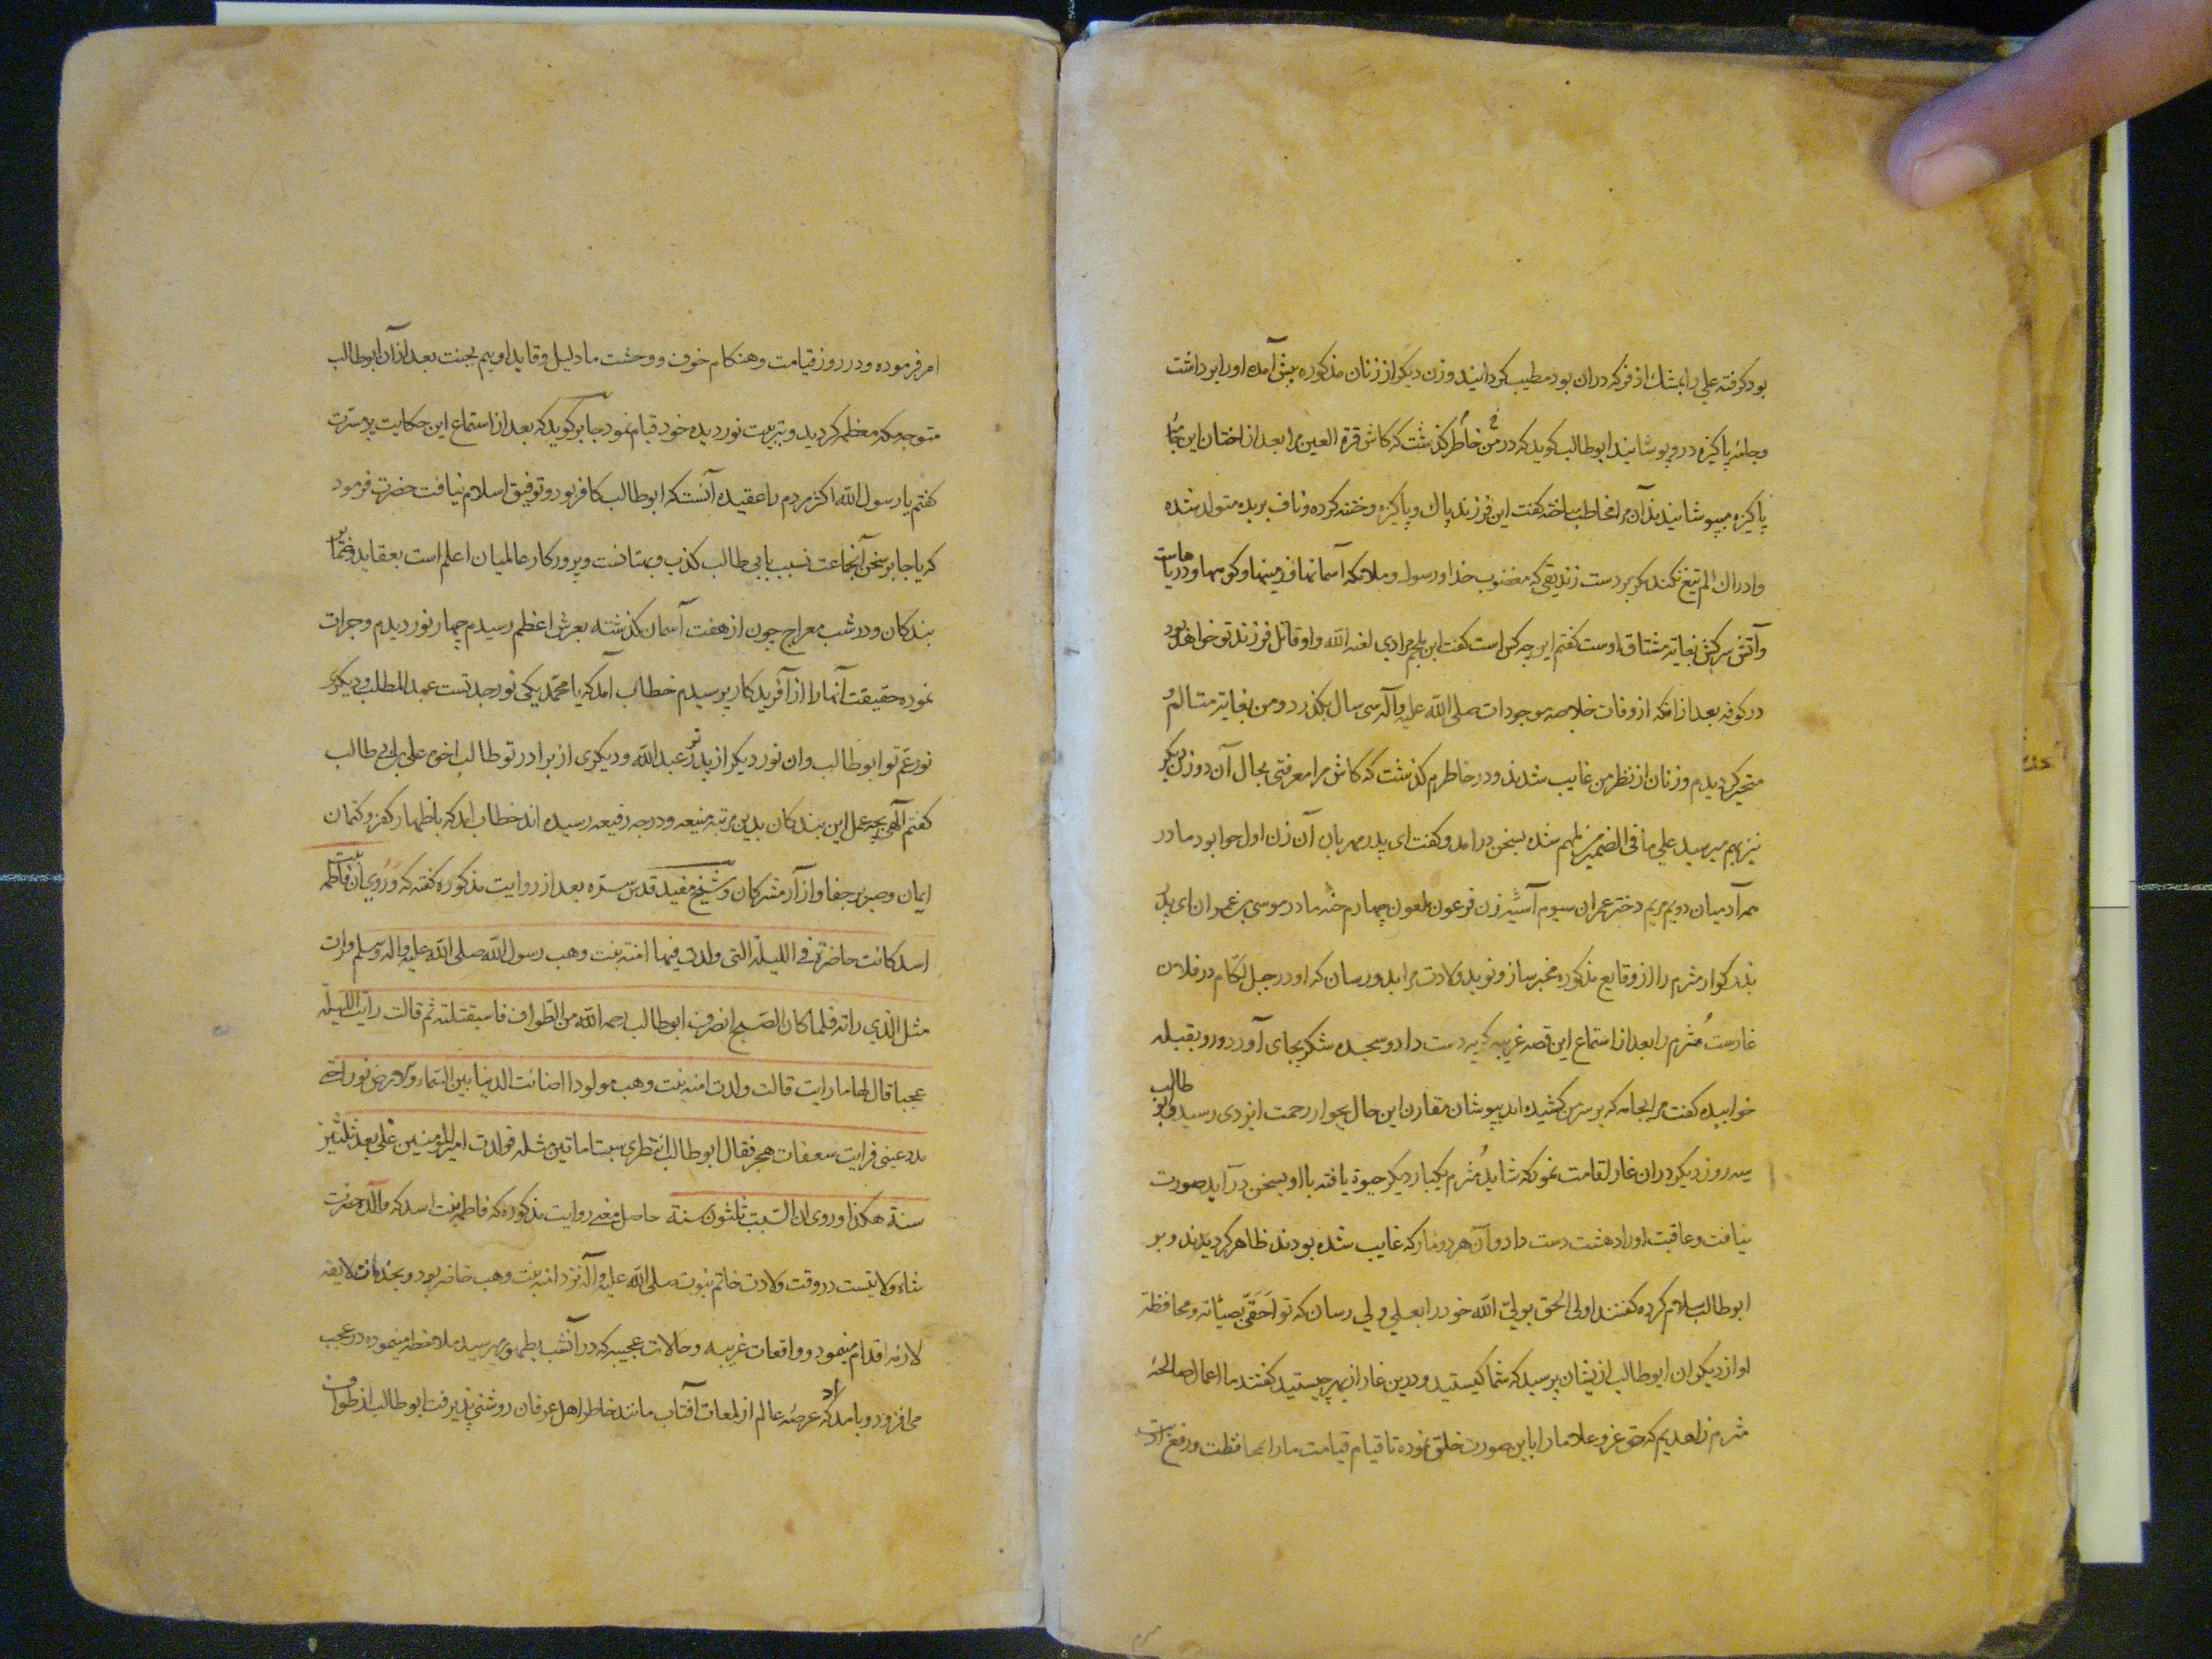 بود کرفته علی را بمشک از فر که دران بود مطیب کردانید و زن دیکر از زنان مذکوره پیش آمده او را برداشت
و جامه پاکیزه درو پوشانید ابوطالب کوید که در من خاطر کذشت که کاش قرة العین مرا بعد از اختان این جامهٔ
پاکیزه میپوشانیدند آن مرا مخاطب ساخته کفت این فرزند پاک و پاکیزه و ختنه کرده و ناف بریده متولد شده
و ادراک الم تیغ نکند مکر بر دست زندیقی که مغضوب خدا و رسول و ملائکه آسمانها و زمینها و کوهها و دریاهاست
و آتش سرکش بغایة مشتاق اوست کفتم این چه کس است کفت ابن ملجم مرادی لعنه الله و او قاتل فرزند تو خواهد بود
در کوفه بعد از انکه از وفات خلاصه موجودات صلی الله علیه وآله سی سال بکذرد و من بغایة متالم و
متحیر کردیدم و زنان از نظر من غایب شدند و در خاطرم کذشت که کاش مرا معرفتی بحال آن دو زن دیکر
نیز بهم میرسید علی ما فی الضمیر ملهم شده بسخن درامد و کفت ای پدر مهربان آن زن اول حوا بود مادر
همه آدمیان دویم مریم دختر عمران سیوم آسیه زن فرعون ملعون چهارم مادر موسی بن عمران ای پدر
بزرکوار مثرم را از وقایع مذکوره مخبر ساز و نوید ولادت مرا بدو رسان که او در جبل لکام در فلان
غارست مُثرم را بعد از استماع این قصه غریبه کریه دست داد و سجده شکر بجای آورد و رو بقبله
خوابیده کفت مرا بجامه که بر سر من کشیده اند بپوشان مقارن این حال بجوار رحمت ایزدی رسید و ابو طالب
سه روز دیکر دران غار اقامت نمود که شاید مُثرم یکبار دیکر حیوة یافته با او بسخن درآید صورت
نیافت و عاقبت او را دهشت دست داد و آن هر دو مار که غایب شده بودند ظاهر کردیدند و بر
ابوطالب سلام کرده کفتند اولی الحق بولی الله خود را بعلی ولی رسان که تو اَحَقّی بصیانة و محافظة
او از دیکران ابوطالب ازیشان پرسید که شما کیستید و درین غار از بهر چیستید کفتند ما اعمال صالحهٔ
مثرم زاهدیم که حق عز و علا ما را باین صورت خلق نموده تا قیام قیامت ما را بمحافظت و رفع
امر فرموده و در روز قیامت و هنکام خوف و وحشت ما دلیل و قاید او بیم بجنت بعد از آن ابوطالب
متوجه مکه معظمه کردید و بتربیت نور دیده خود قیام نمود جابر کوید که بعد از استماع این حکایت پر مسرت
کفتم یا رسول الله اکثر مردم را عقیده آنست که ابوطالب کافر بود و توفیق اسلام نیافت حضرت فرمود
که یا جابر سخن آنجماعت نسبت بابی طالب کذب و بهتانست و پروردکار عالمیان اعلم است بعقاید و ضمایر
بندکان و در شب معراج چون از هفت آسمان کذشته بعرش اعظم رسیدم چهار نور دیدم و جرات
نموده حقیقت آنها را از آفریدکار پرسیدم خطاب آمد که یا محمّد یکی نور جد تست عبد المطلب و دیکری
نور عم تو ابوطالب و ان نور دیکر از پدر تو عبدالله و دیکری از برادر تو طالب اخوی علی بن ابی طالب
کفتم آلهی بچه عمل این بندکان بدین مرتبه منیعه و درجه رفیعه رسیده اند خطاب امد که باظهار کفر و کتمان
ایمان و صبر بر جفا و آزار مشرکان و شیخ مفید قدس سره بعد از روایت مذکوره کفته که وَرُوِیَ ان فاطمه بنت
اسد کانت حاضرة فی اللیلة التی ولدت فیها امنة بنت وهب رسول الله صلی الله علیه واله وسلم ورات
مثل الذی راته فلما کان الصّبح انصرف ابوطالب رحمه الله من الطواف فاستقبلته ثم قالت رایت اللیلة
عجبا قال لها ما رایت قالت ولدت امنه بنت وهب مولودا اضائت الدنیا بین السّماء والارض نورا حتی
مدد عینی فرایت سعفات هجر فقال ابوطالب انتظری سبتا تاتین مثله فولدت امیر المؤمنین علی بعد ثلثین
سنة هکذا وروی ان السّبت ثلثون سنة حاصل معنی روایت مذکوره که فاطمه بنت اسد که والده حضرت
شاه ولایتست در وقت ولادت خاتم نبوت صلی الله علیه وآله نزد امنه بنت وهب حاضر بود و بخدمات لایقه
لازمه اقدام مینمود و واقعات غریبه و حالات عجیبه که در آنشب بظهور میرسید ملاحظه مینموده در عجب
می افزود و بامداد که عرصهٔ عالم از لمعات آفتاب مانند خاطر اهل عرفان روشنی پذیرفت ابوطالب از طواف